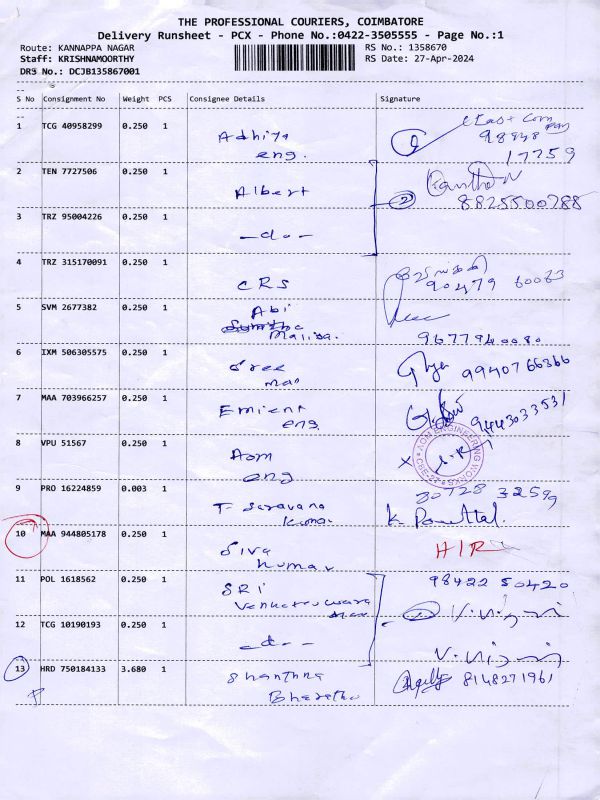 THE PROFESSIONAL COURIERS, COIMBATORE
Delivery Runsheet - PCX - Phone No.:0422-3505555 - Page No.:1
Route: KANNAPPA NAGAR RS No.: 1358670
Staff: KRISHNAMOORTHY RS Date: 27-Apr-2024
DRS No.: DCJB135867001
S No Consignment No Weight PCS Consignee Details Signature
1 TCG 40958299 0.250 1 Adhiya eng.
17759
2 TEN 7727506 0.250 1 Albert
8825500788
3 TRZ 95004226 0.250 1 -do-
4 TRZ 315170091 0.250 1 CRS
90479 60063
5 SVM 2677382 0.250 1 Abi
9677940080
6 IXM 506305575 0.250 1 Sree
9940766366
7 MAA 703966257 0.250 1 Emient eng.
9443033531
8 VPU 51567 0.250 1 Aom eng
AOM ENGINEERING WORKS
9 PRO 16224859 0.003 1 T. Saravana Kumar
10 MAA 944805178 0.250 1 Siva Kumar
11 POL 1618562 0.250 1 SRI
98422 50420
12 TCG 10190193 0.250 1 -do-
13 HRD 750184133 3.680 1 Shanthna
8148271961